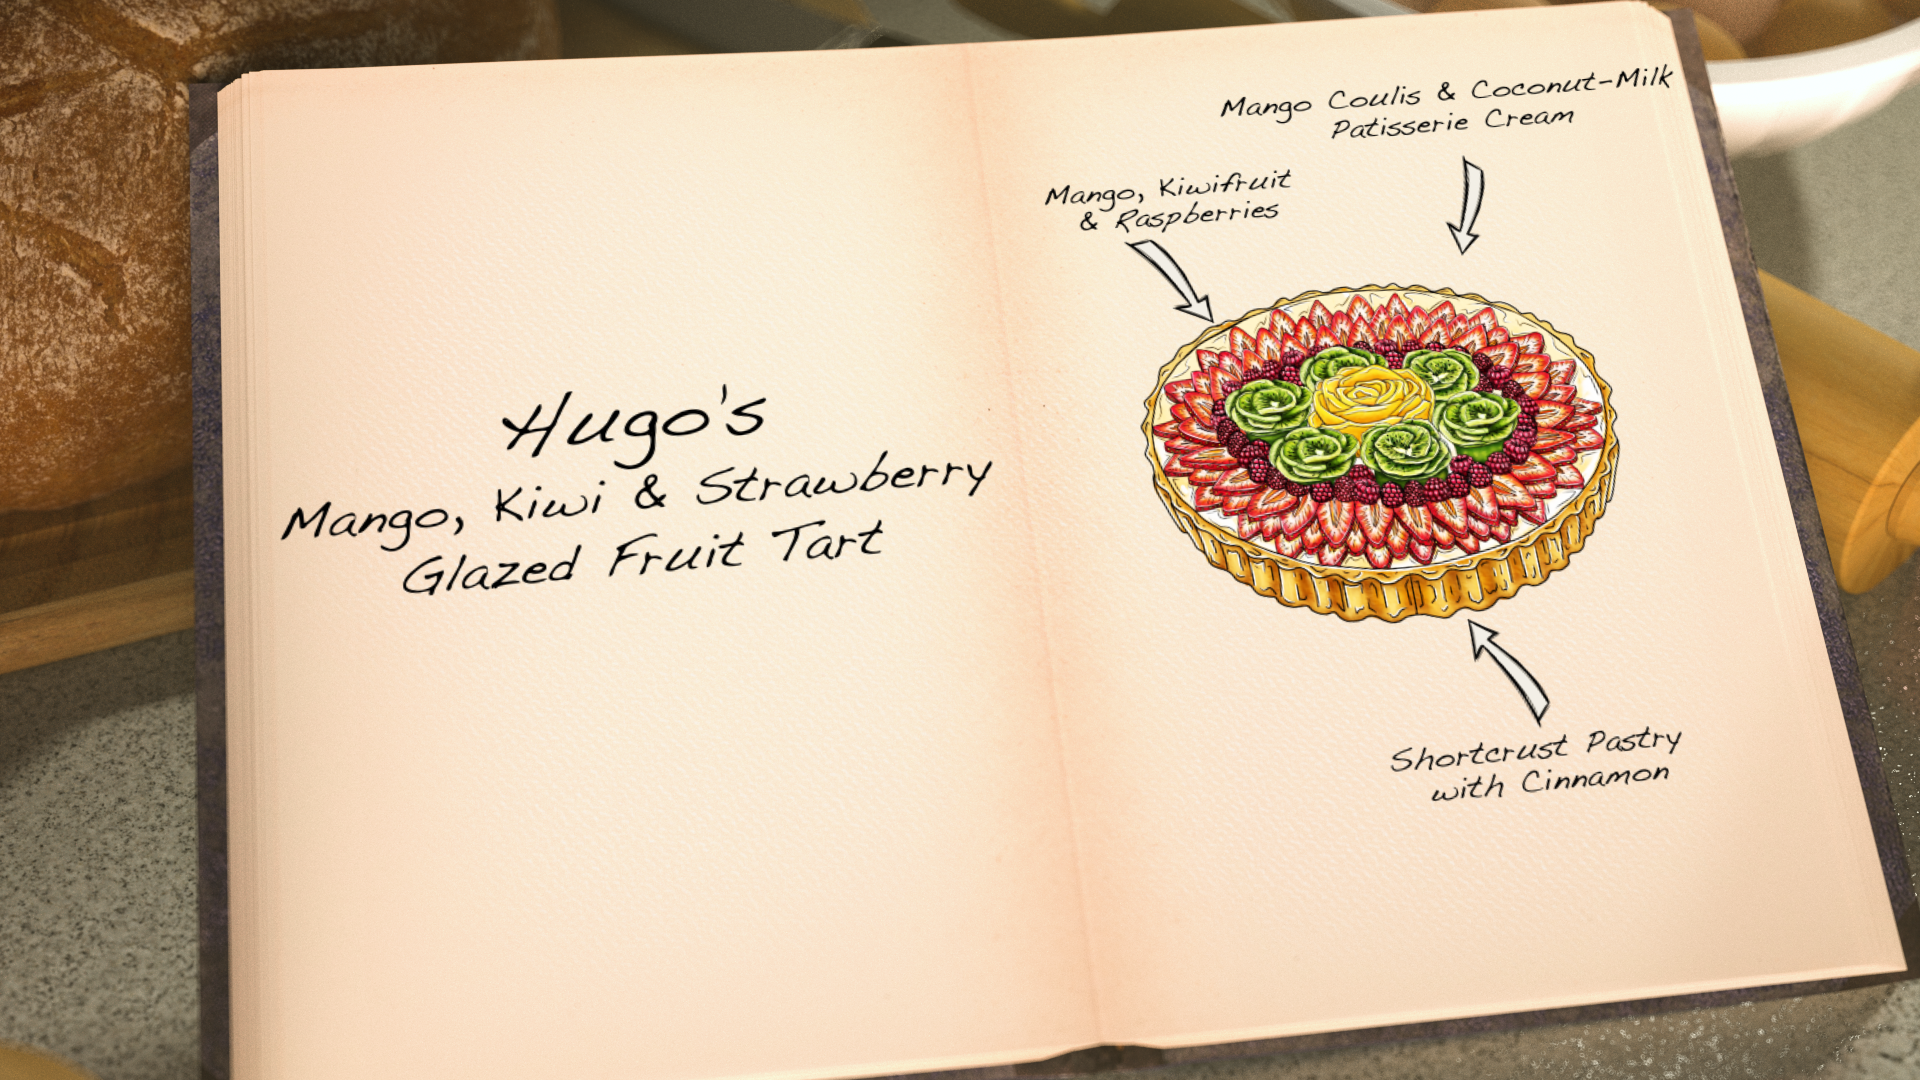 Hugo's
Mango, Kiwi & Strawberry
Glazed Fruit Tart
Mango Coulis & Coconut-Milk
Patisserie Cream
Mango, Kiwifruit
& Raspberries
Shortcrust Pastry
with Cinnamon